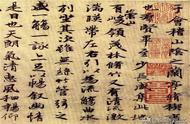 于會稽山陰之蘭亭脩稧
事也群賢畢至少長咸集此地
有崇山峻領茂林脩竹又有清流激
湍暎帶左右引以為流觴曲水
列坐其次雖無絲竹管弦之
盛一觴一詠亦足以暢叙幽情
是日也天朗氣清惠風和暢仰